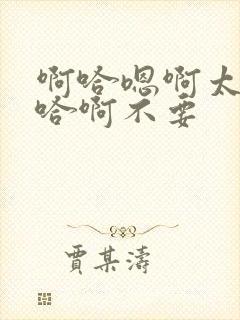 啊哈嗯啊太
哈啊不要
贾某涛